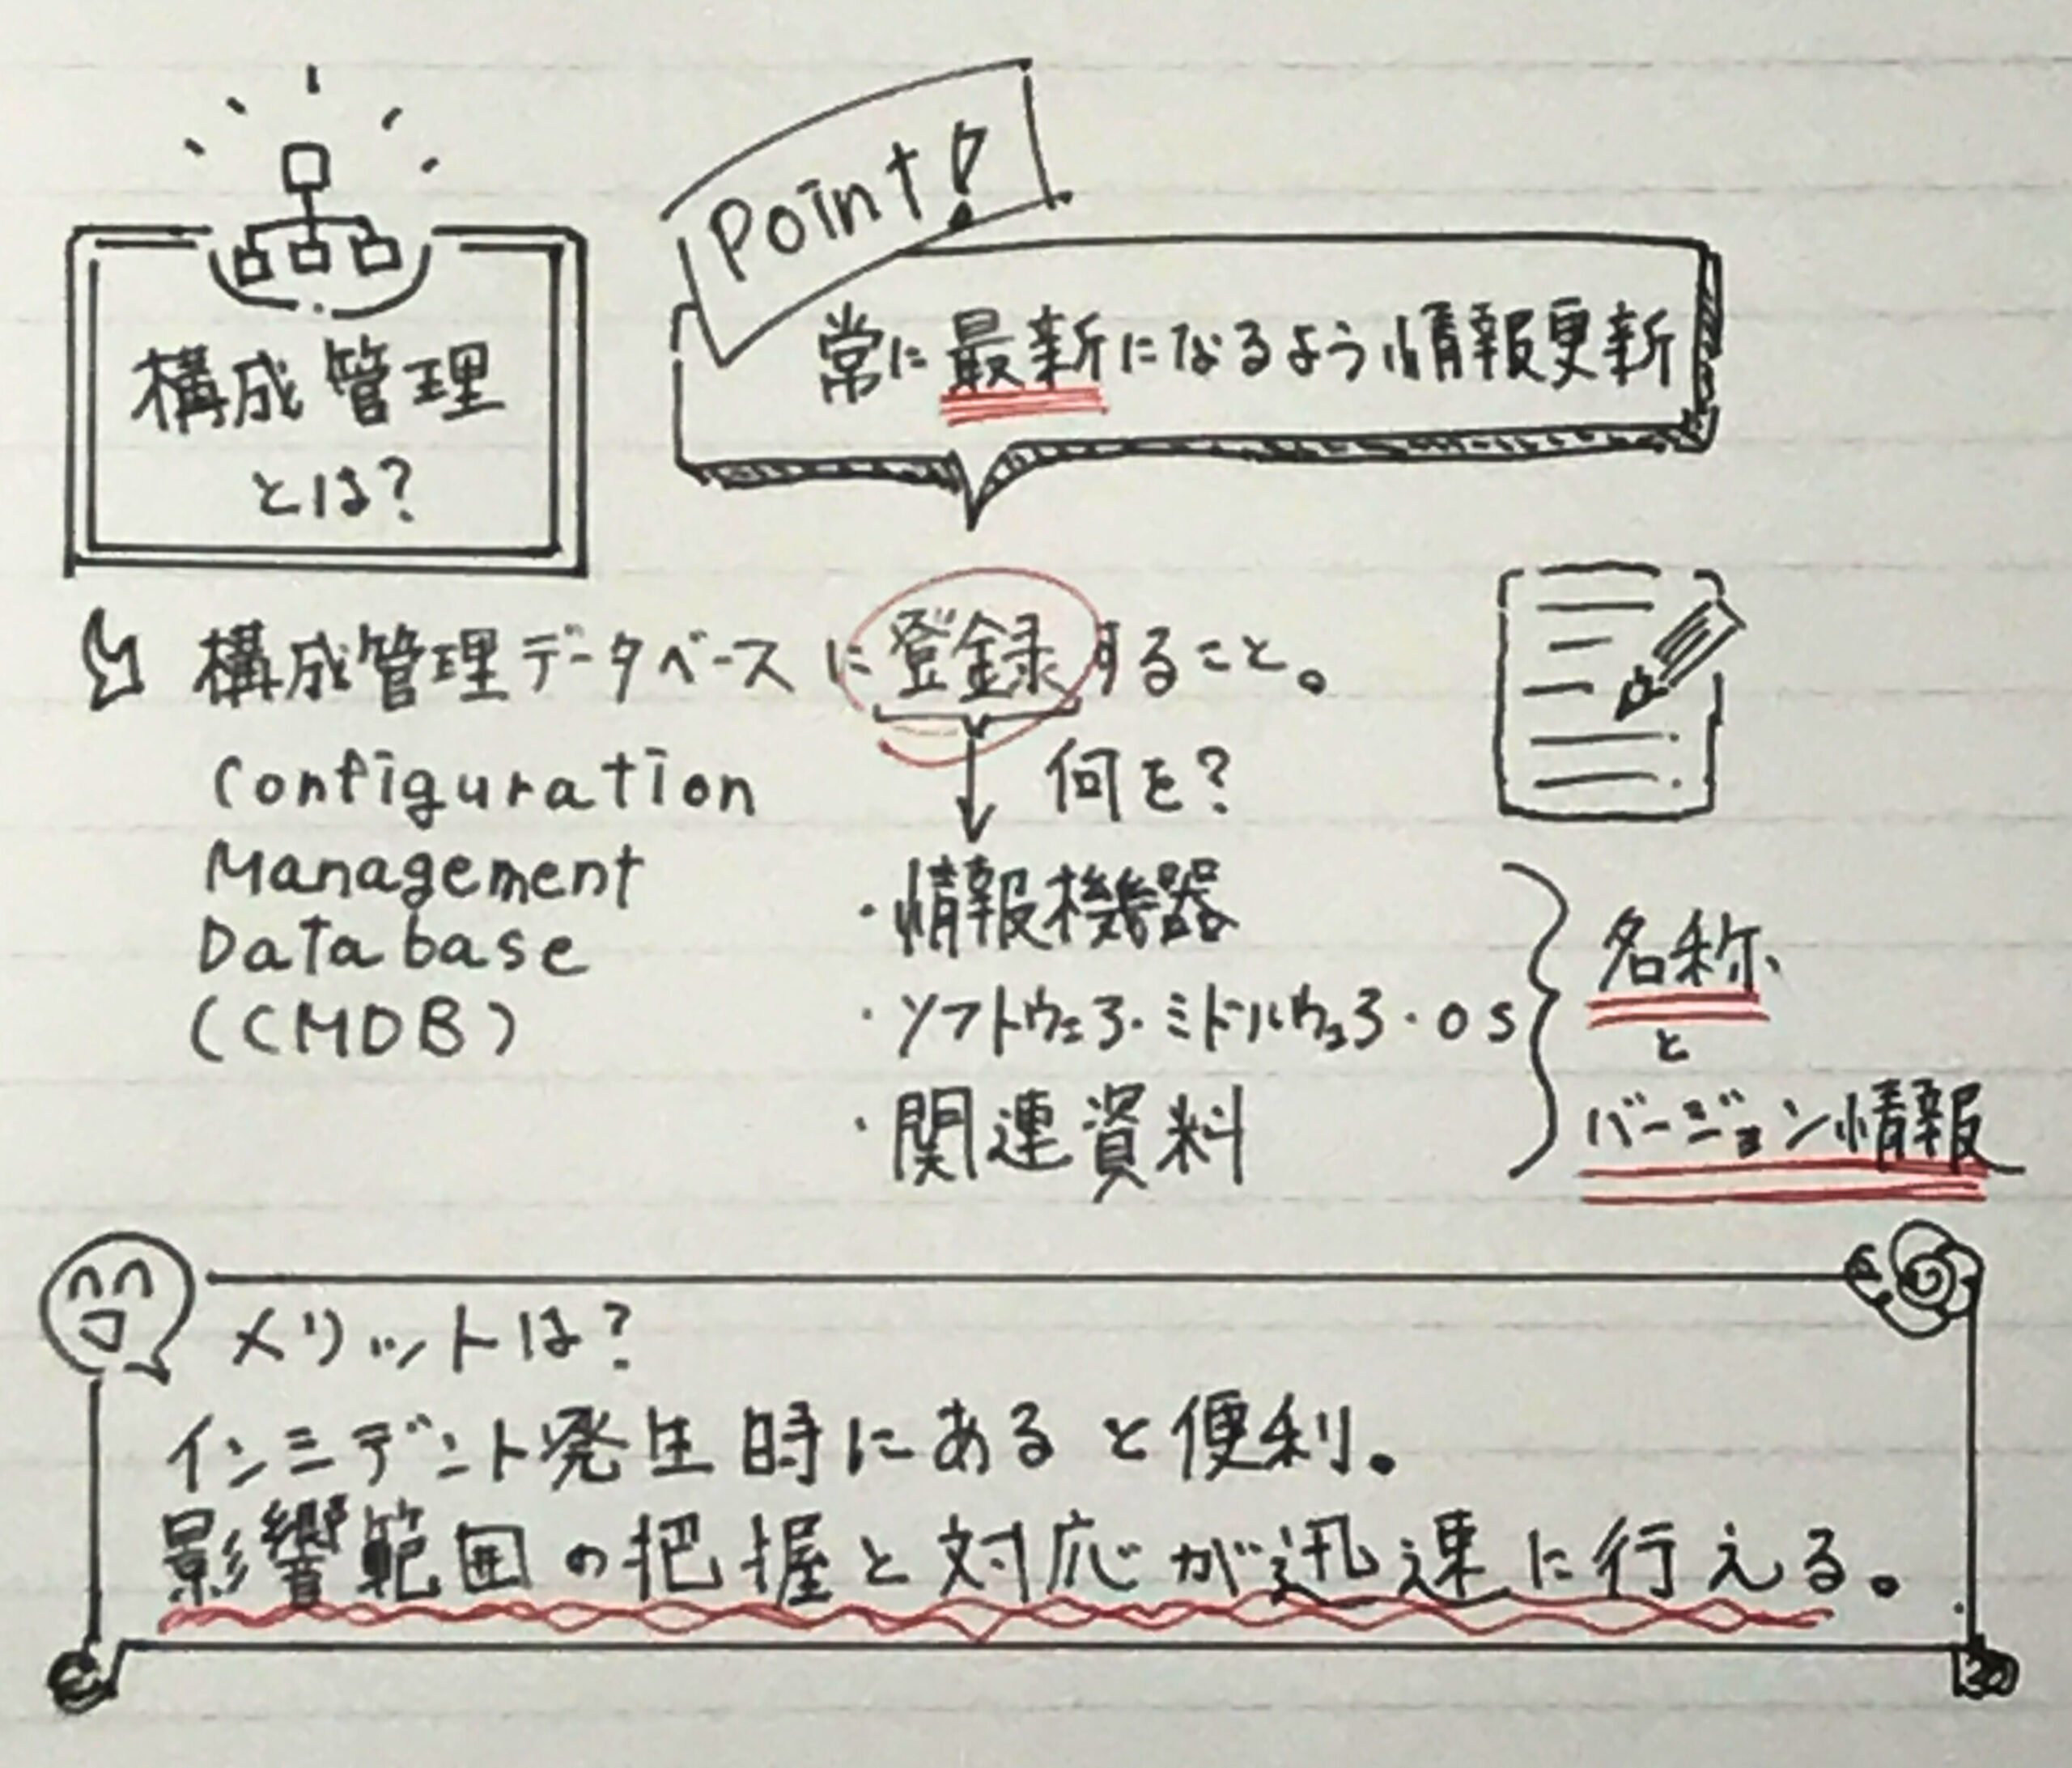 構成管理
とは?
Point!
常に最新になるよう情報更新
構成管理データベースに登録すること。
Configuration
Management
Database
(CMDB)
何を?
・情報機器
・ソフトウェア・ミドルウェア・OS
・関連資料
名称
と
バージョン情報
メリットは?
インシデント発生時にあると便利。
影響範囲の把握と対応が迅速に行える。